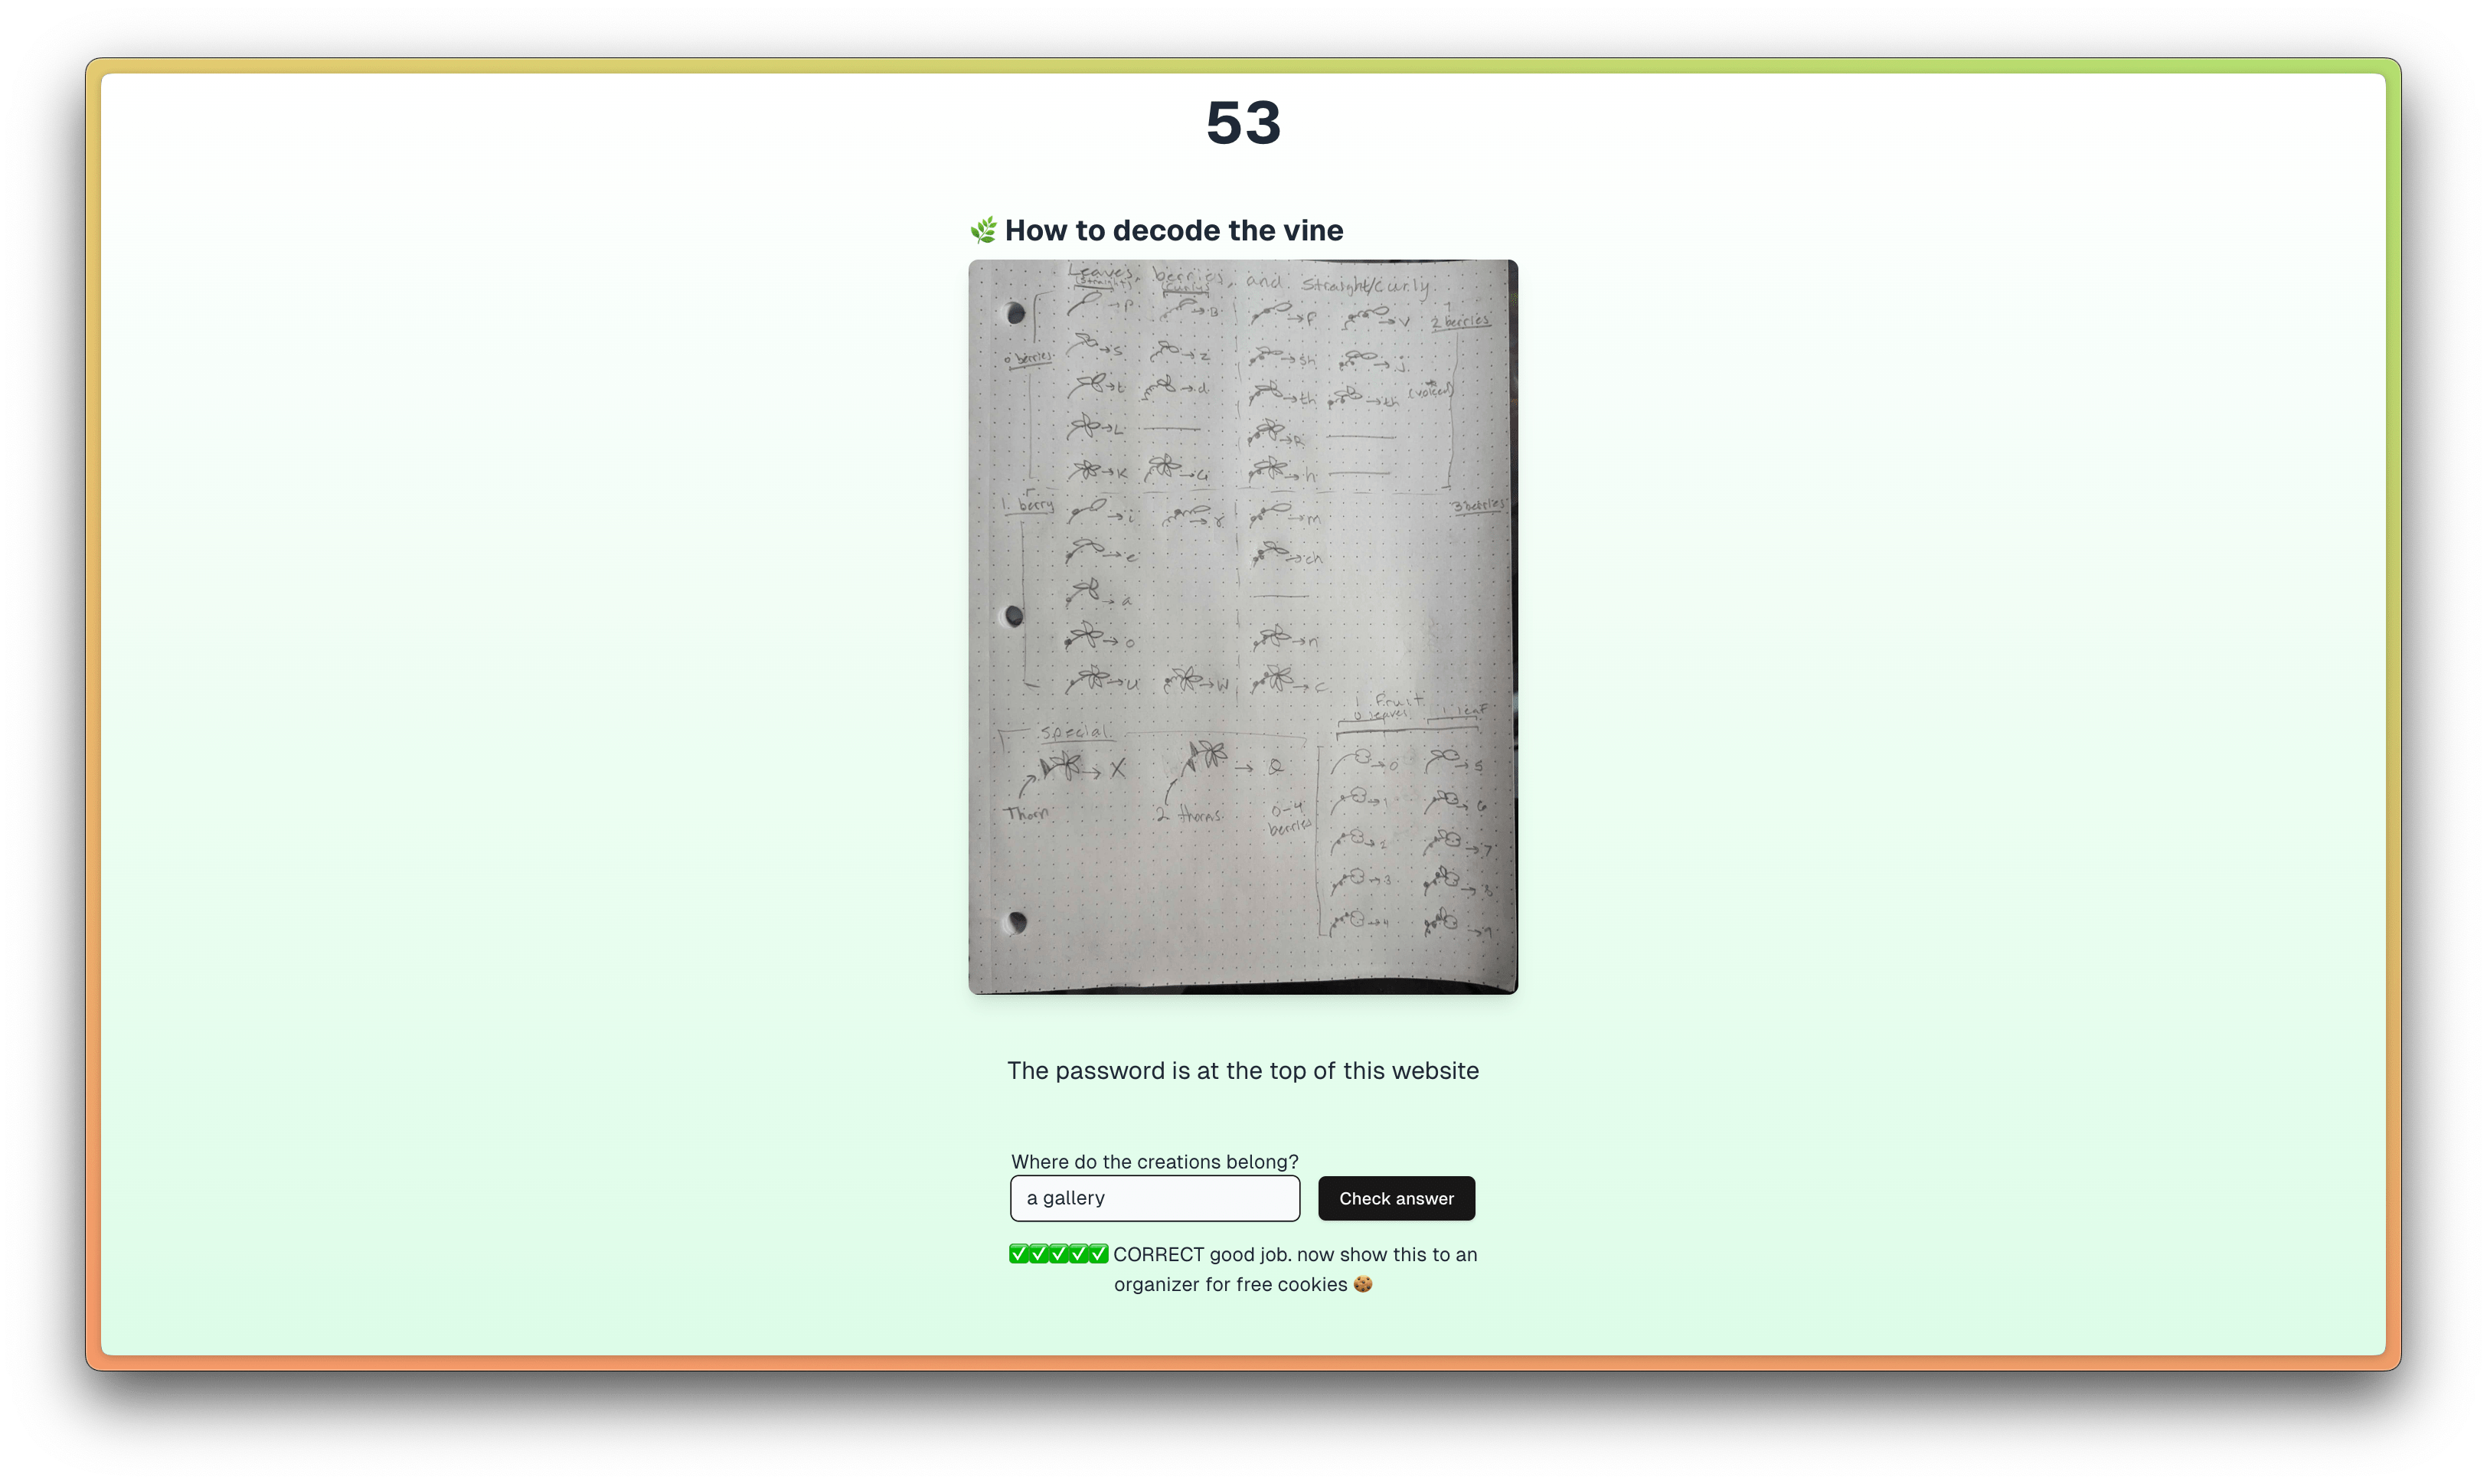 53
🌿 How to decode the vine
Leaves, berries, and Straight/Curly
(Straight) (Curly)
0 berries
2 berries
→ P → B → f → V
→ S → Z → sh → j
→ t → d → th → th (voiced)
→ L → R
→ K → G → h
1 berry
3 berries
→ i → y → m
→ e → ch
→ a
→ o → n
→ u → W → c
1 Fruit
0 leaves 1 leaf
Special
→ X → Q
Thorn
2 thorns
0-4
berries
→ 0 → 5
→ 1 → 6
→ 2 → 7
→ 3 → 8
→ 4 → 9
The password is at the top of this website
Where do the creations belong?
a gallery
Check answer
✅✅✅✅✅ CORRECT good job. now show this to an
organizer for free cookies 🍪